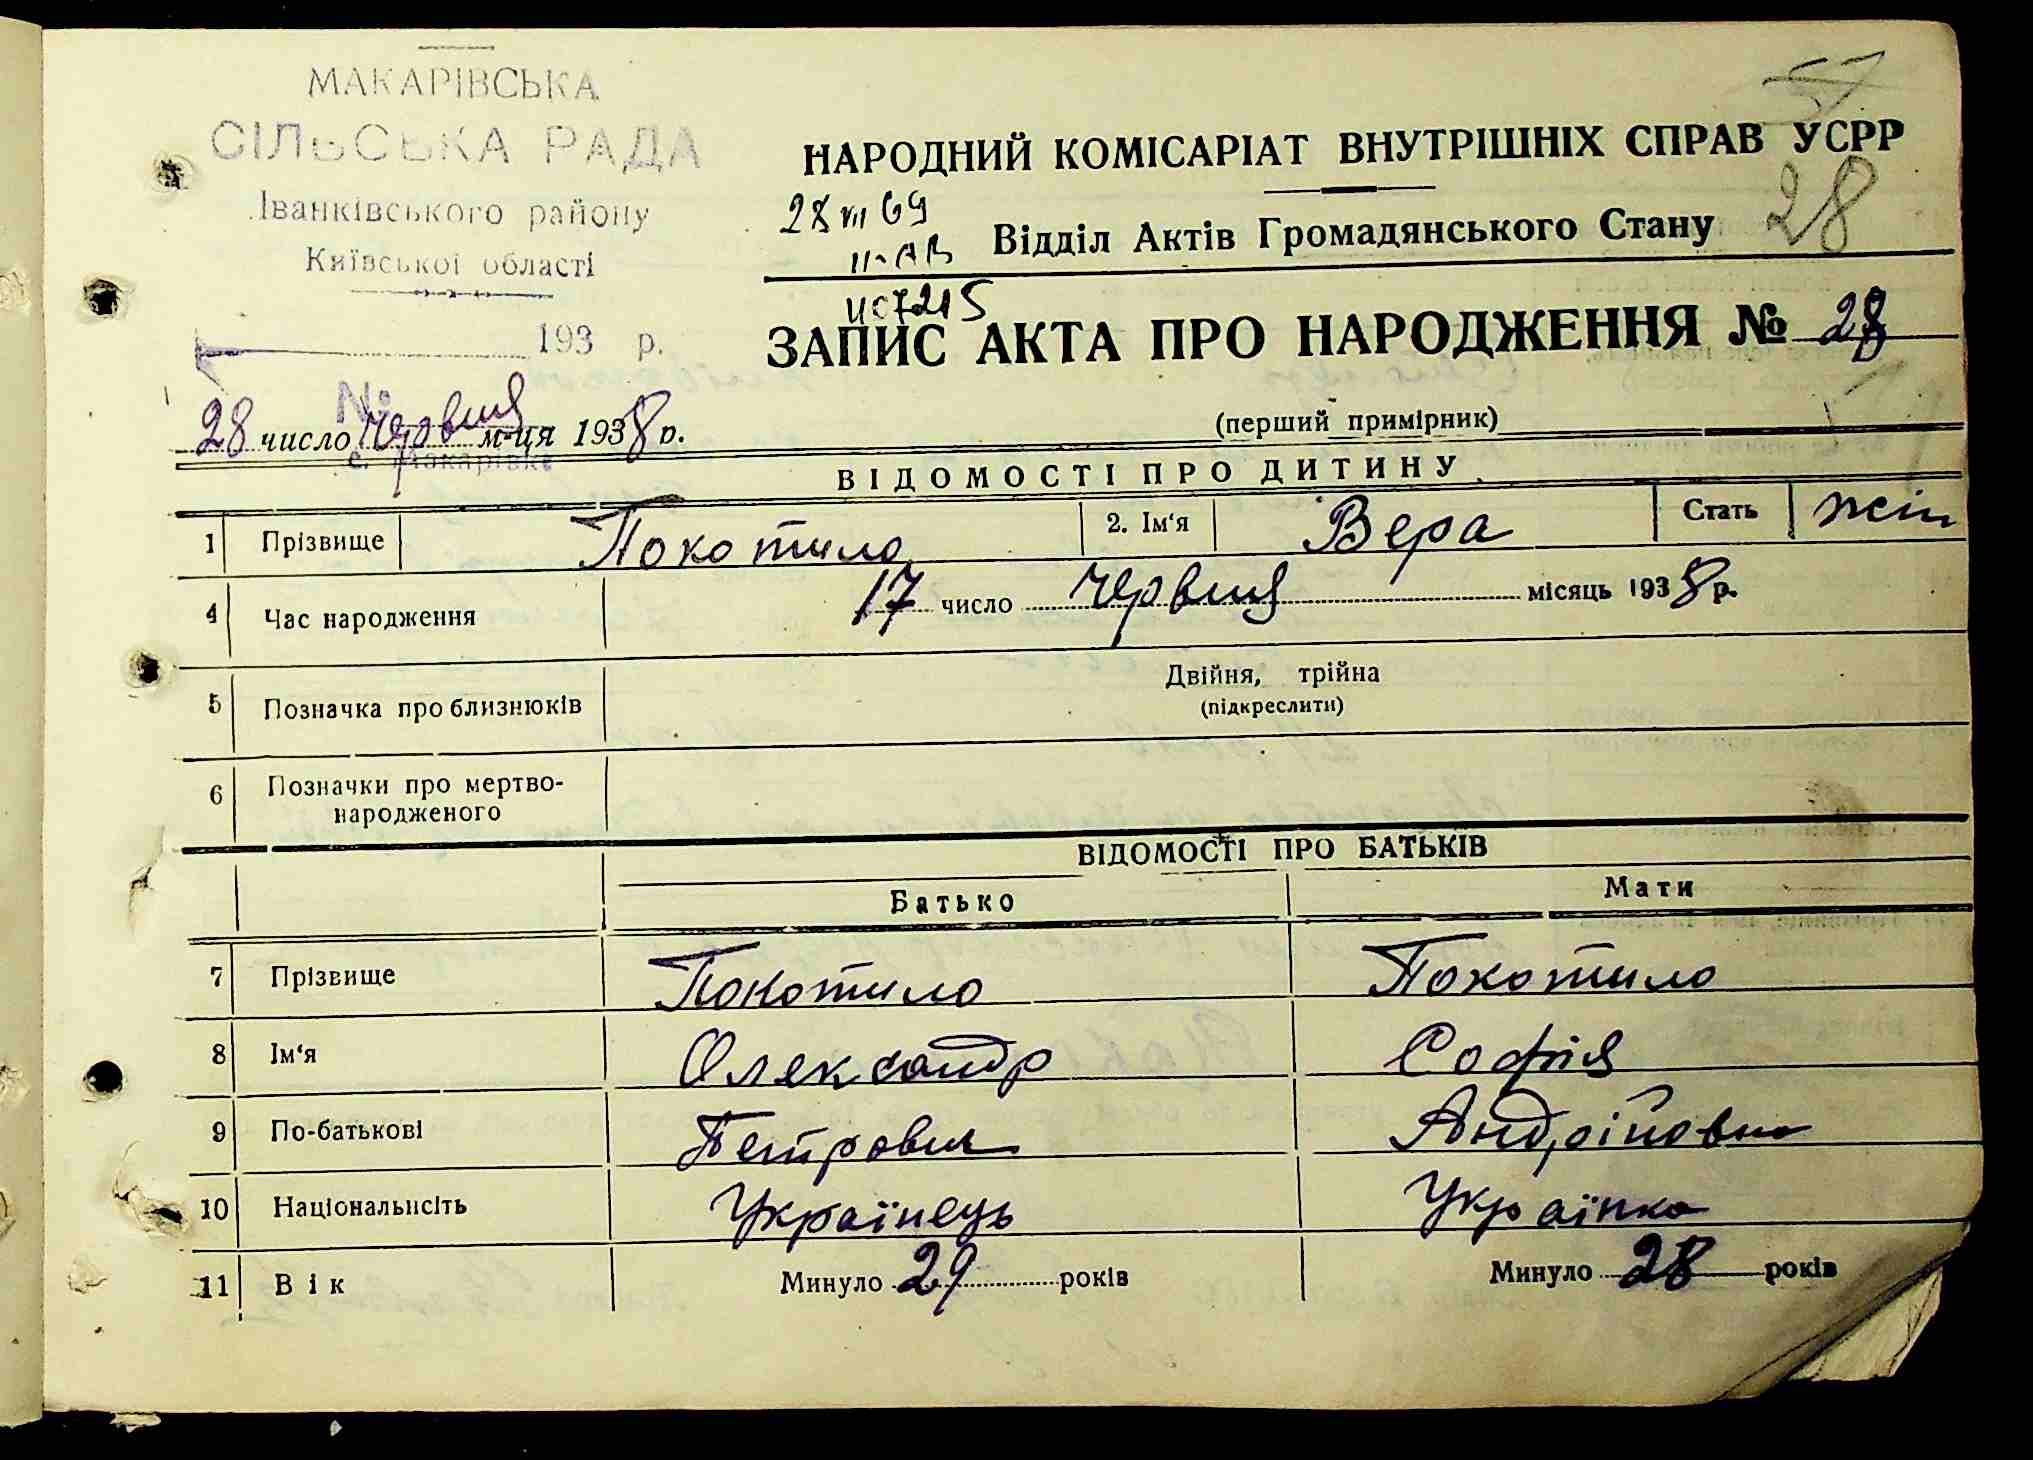 МАКАРІВСЬКА
СІЛЬСЬКА РАДА
Іванківського району
Київської області
193 р.
№
с. Макарівка
57
НАРОДНИЙ КОМІСАРІАТ ВНУТРІШНІХ СПРАВ УСРР
28 VII 69
28
Відділ Актів Громадянського Стану
II-АВ
407215
ЗАПИС АКТА ПРО НАРОДЖЕННЯ № 28
28 число Червня м-ця 1938 р.
(перший примірник)
ВІДОМОСТІ ПРО ДИТИНУ
1 Прізвище Покотило 2. Ім'я Вера Стать жін
4 Час народження 17 число Червня місяць 1938 р.
5 Позначка про близнюків Двійня, трійна
(підкреслити)
6 Позначки про мертво-
народженого
ВІДОМОСТІ ПРО БАТЬКІВ
Батько Мати
7 Прізвище Покотило Покотило
8 Ім'я Олександр Софія
9 По-батькові Петрович Андріївна
10 Національнсіть Українець Українка
11 Вік Минуло 29 років Минуло 28 років